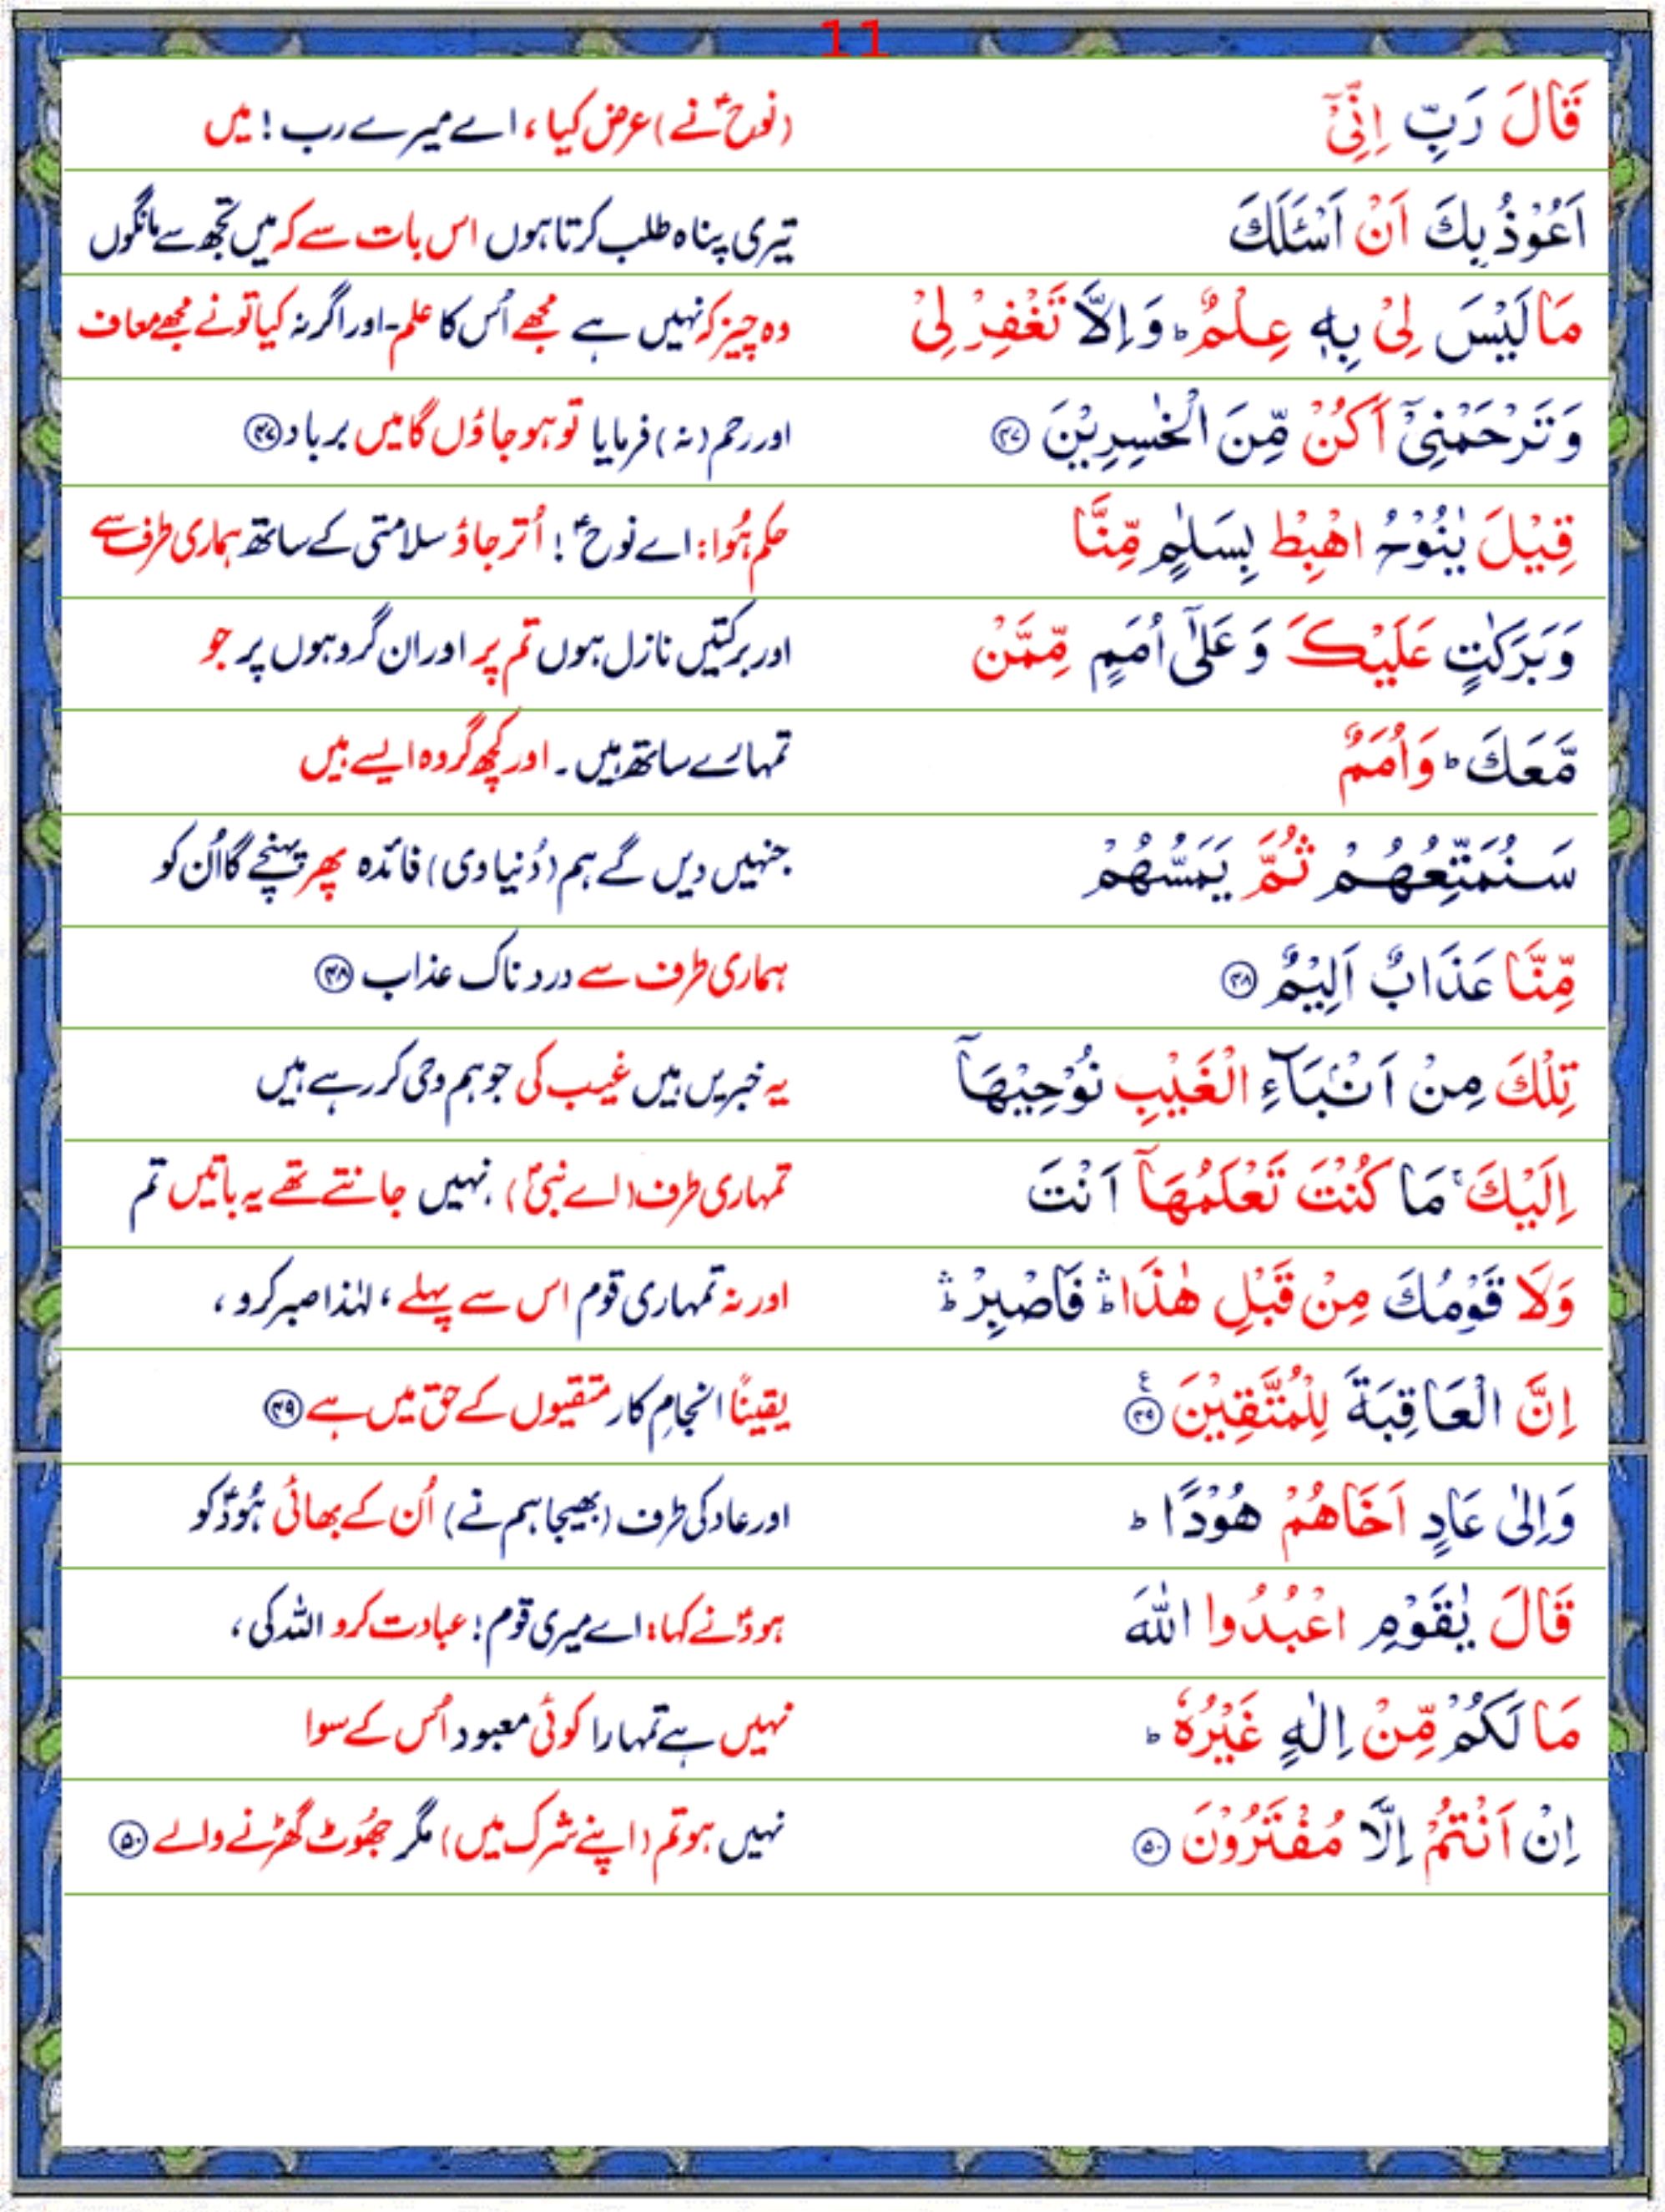 11
قَالَ رَبِّ اِنِّیْۤ (نوحؑ نے) عرض کیا، اے میرے رب! میں
اَعُوْذُ بِكَ اَنْ اَسْـَٔلَكَ تیری پناہ طلب کرتا ہوں اس بات سے کہ میں تجھ سے مانگوں
مَا لَیْسَ لِیْ بِهٖ عِلْمٌ ؕ وَ اِلَّا تَغْفِرْ لِیْ وہ چیز کہ نہیں ہے مجھے اُس کا علم۔ اور اگر نہ کیا تو نے مجھے معاف
وَ تَرْحَمْنِیْۤ اَكُنْ مِّنَ الْخٰسِرِیْنَ ۴۷ اور رحم (نہ) فرمایا تو ہو جاؤں گا میں برباد ۴۷
قِیْلَ یٰنُوْحُ اهْبِطْ بِسَلٰمٍ مِّنَّا حکم ہُوا: اے نوحؑ! اُتر جاؤ سلامتی کے ساتھ ہماری طرف سے
وَ بَرَكٰتٍ عَلَیْكَ وَ عَلٰۤی اُمَمٍ مِّمَّنْ اور برکتیں نازل ہوں تم پر اور ان گروہوں پر جو
مَّعَكَ ؕ وَ اُمَمٌ تمہارے ساتھ ہیں۔ اور کچھ گروہ ایسے ہیں
سَنُمَتِّعُهُمْ ثُمَّ یَمَسُّهُمْ جنہیں دیں گے ہم (دُنیاوی) فائدہ پھر پہنچے گا اُن کو
مِّنَّا عَذَابٌ اَلِیْمٌ ۴۸ ہماری طرف سے دردناک عذاب ۴۸
تِلْكَ مِنْ اَنْۢبَآءِ الْغَیْبِ نُوْحِیْهَاۤ یہ خبریں ہیں غیب کی جو ہم وحی کر رہے ہیں
اِلَیْكَ ۚ مَا كُنْتَ تَعْلَمُهَاۤ اَنْتَ تمہاری طرف (اے نبیؐ) نہیں جانتے تھے یہ باتیں تم
وَ لَا قَوْمُكَ مِنْ قَبْلِ هٰذَا ۛؕ فَاصْبِرْ ۛؕ اور نہ تمہاری قوم اس سے پہلے، لہٰذا صبر کرو،
اِنَّ الْعَاقِبَةَ لِلْمُتَّقِیْنَ ۴۹ ع یقیناً انجامِ کار متقیوں کے حق میں ہے ۴۹
وَ اِلٰی عَادٍ اَخَاهُمْ هُوْدًا ؕ اور عاد کی طرف (بھیجا ہم نے) اُن کے بھائی ہُودؑ کو
قَالَ یٰقَوْمِ اعْبُدُوا اللّٰهَ ہودؑ نے کہا: اے میری قوم! عبادت کرو اللہ کی،
مَا لَكُمْ مِّنْ اِلٰهٍ غَیْرُهٗ ؕ نہیں ہے تمہارا کوئی معبود اُس کے سوا
اِنْ اَنْتُمْ اِلَّا مُفْتَرُوْنَ ۵۰ نہیں ہو تم (اپنے شرک میں) مگر جُھوٹ گھڑنے والے ۵۰